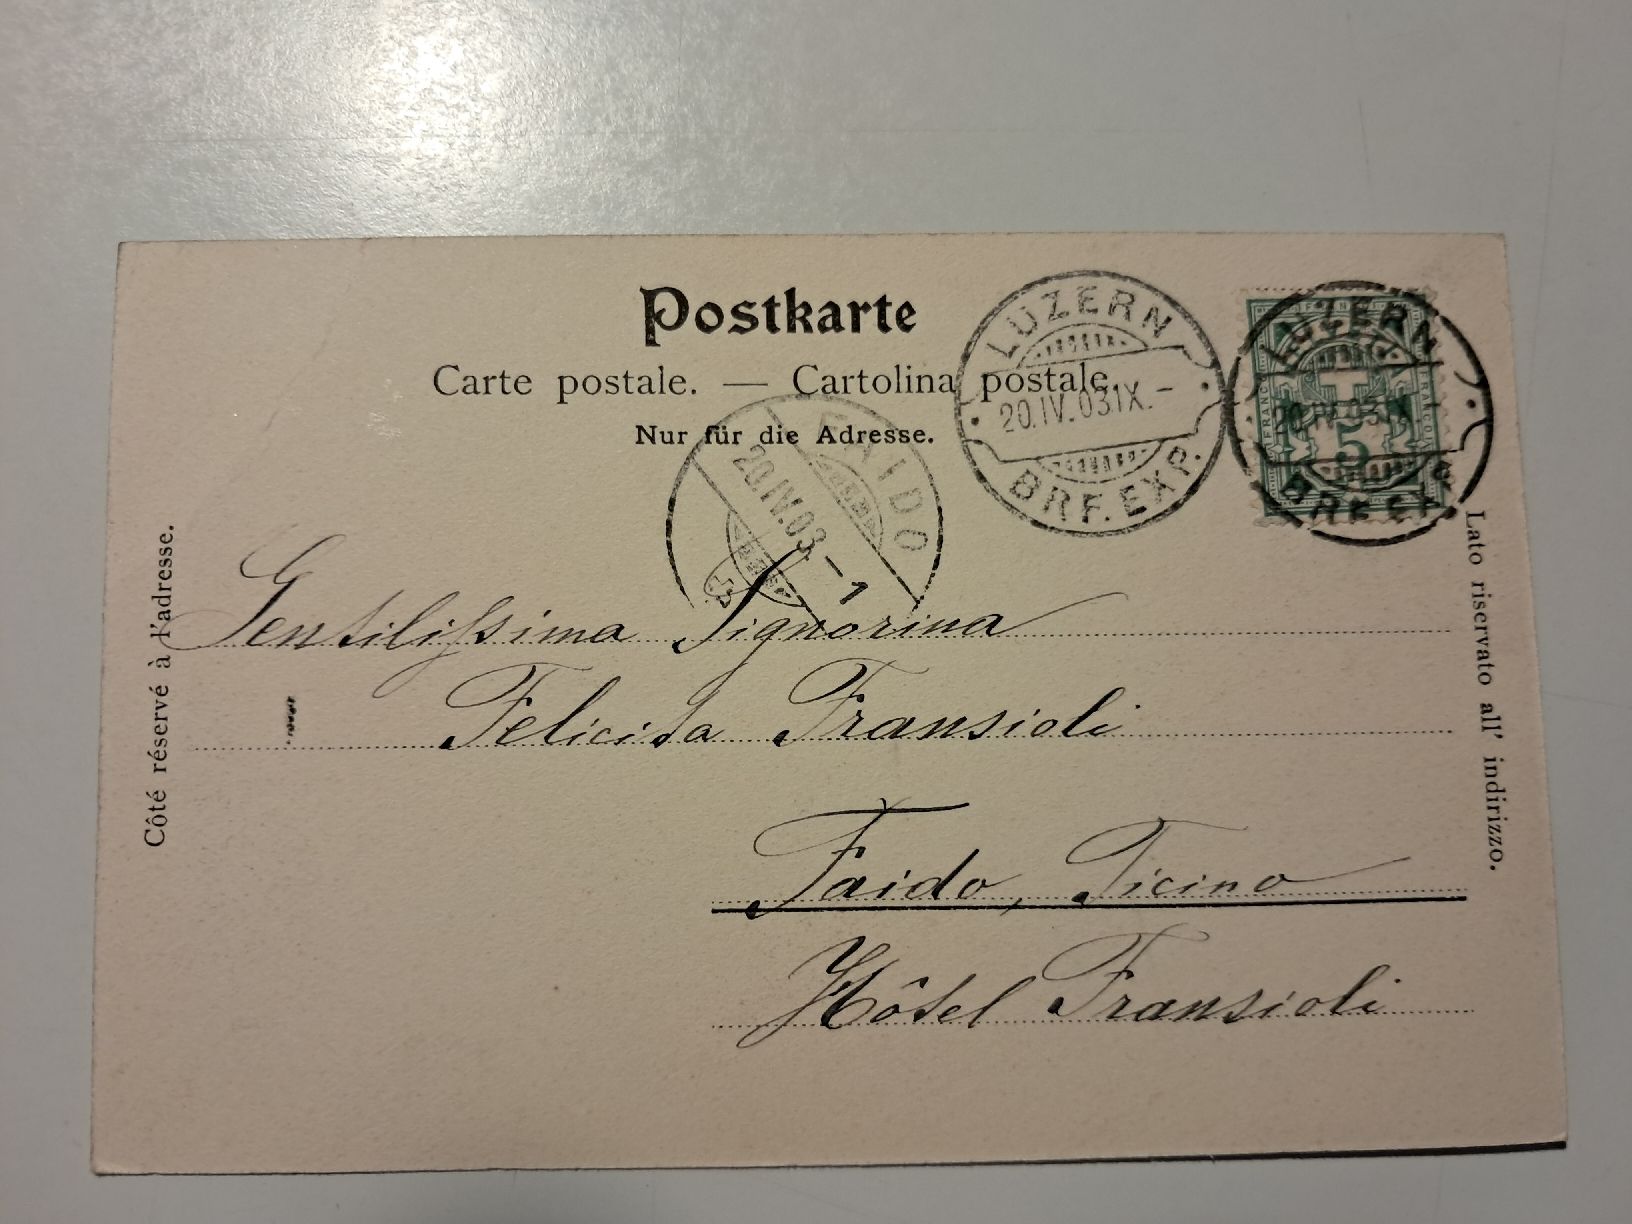 Postkarte
Carte postale. — Cartolina postale.
Nur für die Adresse.
LUZERN
20.IV.03 IX.-
BRF. EXP.
LUZERN
20.IV.03 IX-
BRF. EXP.
FRANCO
FRANCO
5
FAIDO
20.IV.03.-1
Côté réservé à l'adresse.
Lato riservato all' indirizzo.
Gentilissima Signorina
Felicita Fransioli
Faido, Ticino
Hôtel Fransioli